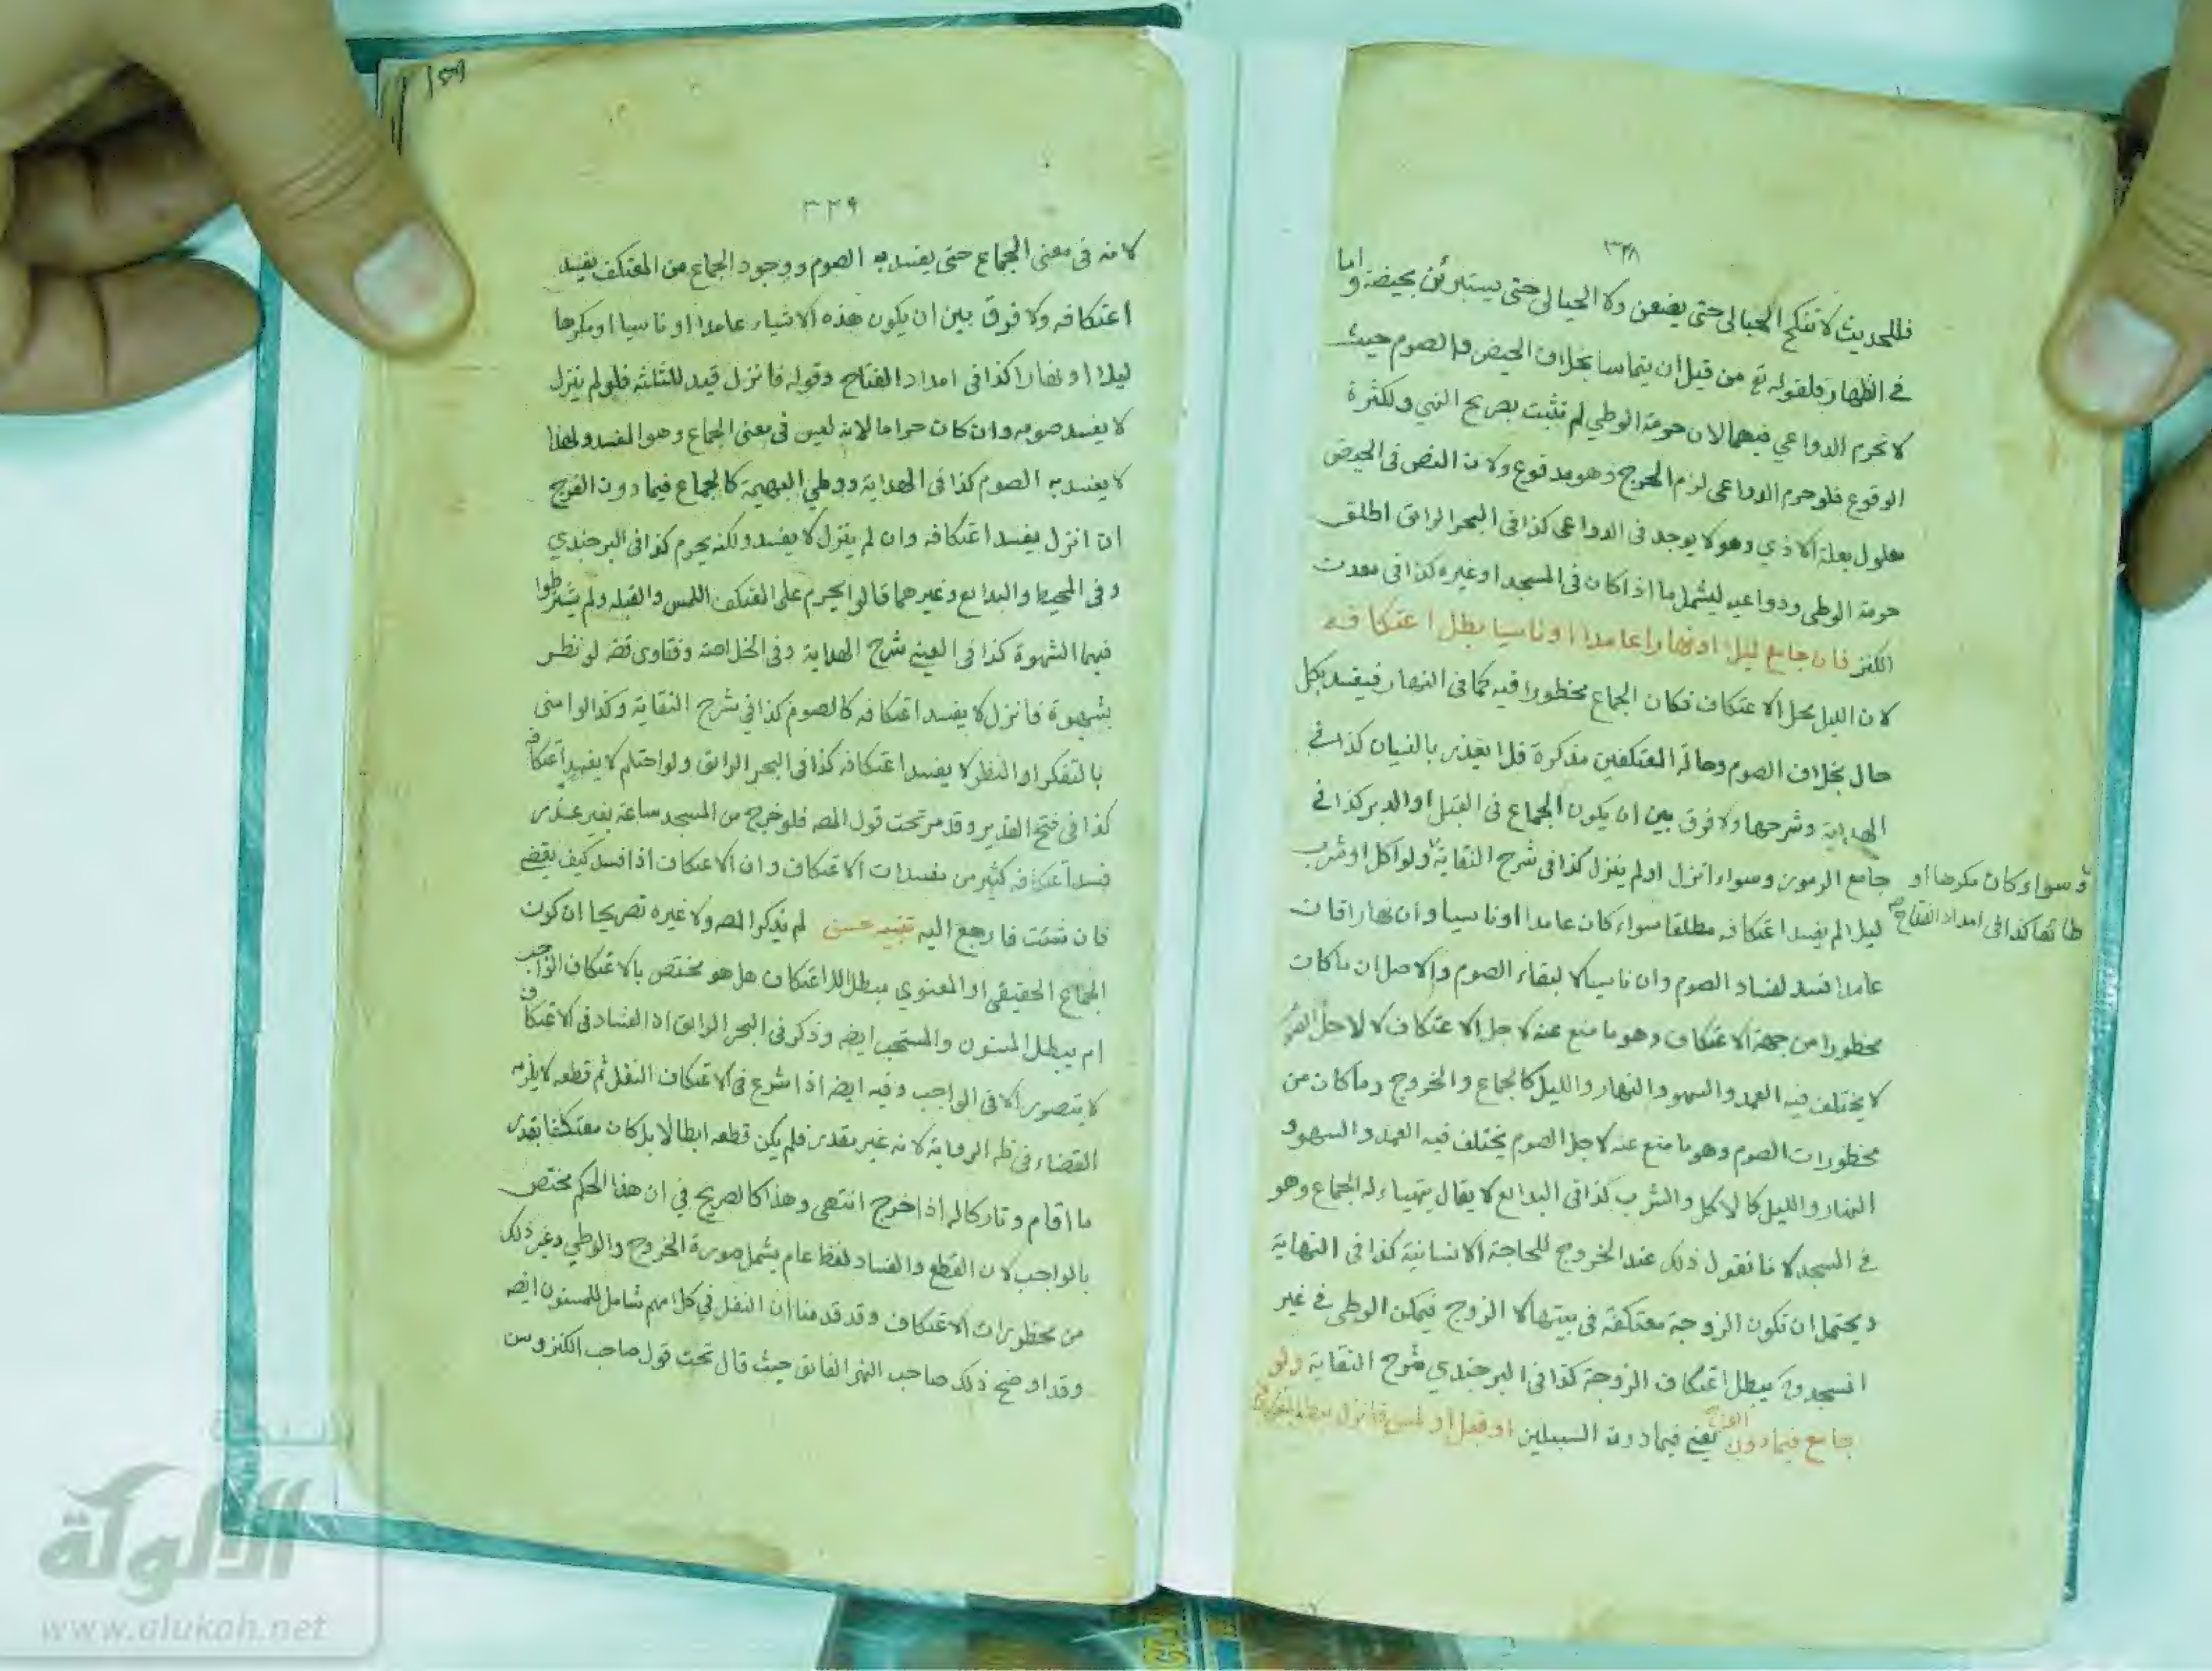 ٣٢٨
فللحديث لا تنكح الحبالى حتى يضعن ولا الحيالى حتى يستبرئن بحيضة واما
في الظهار فلقوله تع من قبل ان يتماسا بخلاف الحيض والصوم حيث
لا تحرم الدواعي فيهما لان حرمة الوطي لم تثبت بصريح النهي ولكثرة
الوقوع فلو حرم الدواعي لزم الحرج وهو مدفوع ولان النص في الحيض
معلول بعلة الاذي وهو لا يوجد في الدواعي كذا في البحر الرائق اطلق
حرمة الوطي ودواعيه ليشمل ما اذا كان في المسجد او غيره كذا في معدن
الكنز فان جامع ليلا او نهارا عامدا او ناسيا بطل اعتكافه
لان الليل محل الاعتكاف فكان الجماع محظورا فيه كما في النهار فيفسد بكل
حال بخلاف الصوم وحالة المعتكفين مذكرة فلا يعذر بالنسيان كذا في
الهداية وشرحها ولا فرق بين ان يكون الجماع في القبل او الدبر كذا في
جامع الرموز وسواء انزل او لم ينزل كذا في شرح النقاية ولو اكل او شرب
وسواء كان مكرها او
طائعا كذا في امداد الفتاح صح
ليلا لم يفسد اعتكافه مطلقا سواء كان عامدا او ناسيا وان نهارا فان
عامدا فسد لفساد الصوم وان ناسيا لا لبقاء الصوم والاصل ان ما كان
محظورا من جهة الاعتكاف وهو ما منع عنه لاجل الاعتكاف لا لاجل الصوم
لا يختلف فيه العمد والسهو والنهار والليل كالجماع والخروج وما كان من
محظورات الصوم وهو ما منع عنه لاجل الصوم يختلف فيه العمد والسهو و
النهار والليل كالاكل والشرب كذا في البدايع لا يقال يتهياء له الجماع وهو
في المسجد لانا نقول ذلك عند الخروج للحاجة الانسانية كذا في النهاية
ويحتمل ان تكون الزوجة معتكفة في بيتها لا الزوج فيمكن الوطي في غير
المسجد و يبطل اعتكاف الزوجة كذا في البرجندي شرح النقاية ولو
جامع فيما دون الفرج يعني فيما دون السبيلين او قبل او لمس فانزل بطل
٣٢٩
لانه في معنى الجماع حتى يفسد به الصوم ووجود الجماع من المعتكف يفسد
اعتكافه ولا فرق بين ان يكون هذه الاشياء عامدا او ناسيا او مكرها
ليلا او نهارا كذا في امداد الفتاح وقوله فانزل قيد للثلثه فلو لم ينزل
لا يفسد صومه وان كان حراما لانه ليس في معنى الجماع وهو المفسد ولهذا
لا يفسد به الصوم كذا في الهداية ووطي البهيمة كالجماع فيما دون الفرج
ان انزل يفسد اعتكافه وان لم ينزل لا يفسد ولكنه يحرم كذا في البرجندي
وفي المحيط والبدايع وغيرهما قالوا يحرم على المعتكف اللمس والقبله ولم يشترطوا
فيها الشهوة كذا في العيني شرح الهداية وفي الخلاصة وفتاوى قضه لو نظر
بشهوة فانزل لا يفسد اعتكافه كالصوم كذا في شرح النقاية وكذا لو امنى
بالتفكر او النظر لا يفسد اعتكافه كذا في البحر الرائق ولو احتلم لا يفسد اعتكافه
كذا في فتح القدير وقد مر تحت قول المصه فلو خرج من المسجد ساعة بغير عذر
فسد اعتكافه كثير من مفسدات الاعتكاف وان الاعتكاف اذا فسد كيف يقضي
فان شئت فارجع اليه تنبيه حسن لم يذكر المصه ولا غيره تصريحا ان كون
الجماع الحقيقي او المعنوي مبطلا للاعتكاف هل هو مختص بالاعتكاف الواجب
ام يبطل المسنون والمستحب ايضه وذكر في البحر الرائق اذ الفساد في الاعتكاف
لا يتصور الا في الواجب وفيه ايضه اذا شرع في الاعتكاف النفل ثم قطعه لا يلزمه
القضاء في ظه الرواية لانه غير مقدر فلم يكن قطعه ابطالا بل كان معتكفا بقدر
ما اقام وتاركا له اذا خرج انتهى وهذا كالصريح في ان هذا الحكم مختص
بالواجب لان القطع والفساد لفظ عام يشمل صورة الخروج والوطي وغير ذلك
من محظورات الاعتكاف وقد قدمنا ان النفل في كلامهم شامل للمسنون ايضه
وقد اوضح ذلك صاحب النهر الفائق حيث قال تحت قول صاحب الكنز وسن
الألوكة
www.alukah.net